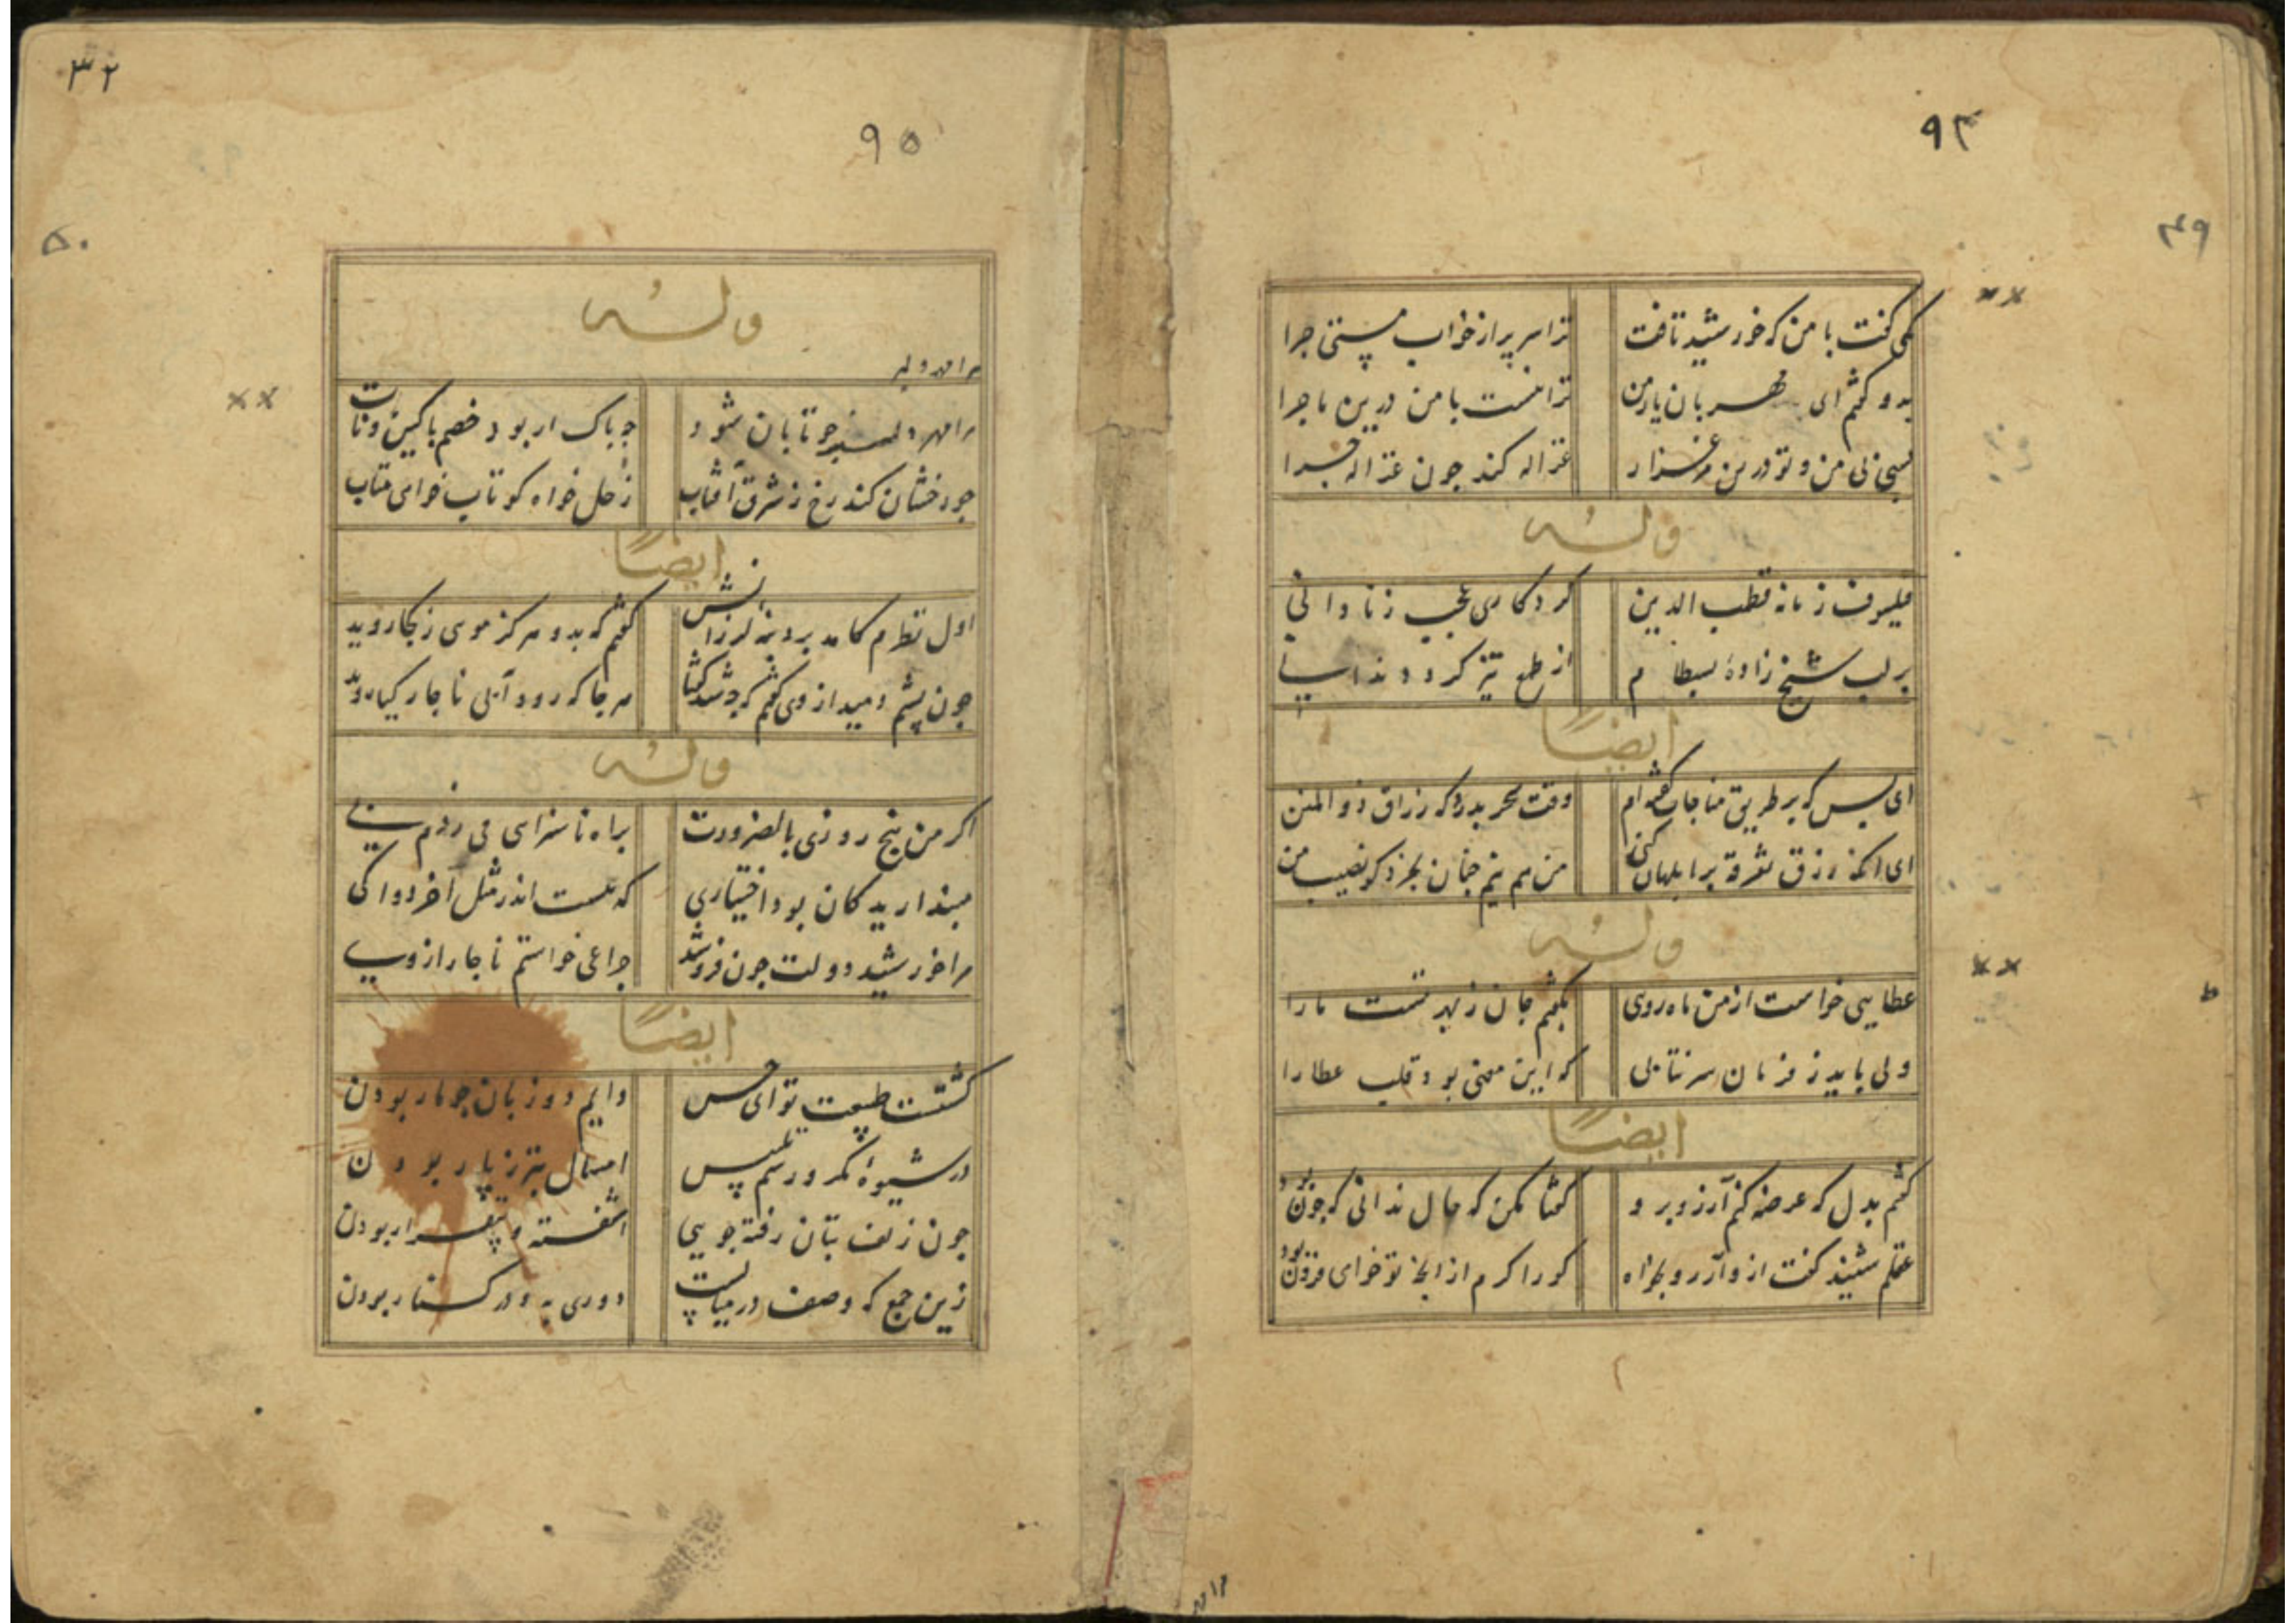 ۹۴
۴۹
یکی گفت با من که خورشید تافت ترا سر پر از خواب مستی چرا
بدو گفتم ای مهربان یار من ترا نیست با من درین ماجرا
بسی بی من و تو درین مرغزار غزاله کند چون غزاله چرا
وله
فیلسوف زمانه قطب الدین کرد کاری عجب ز نادانی
بر لب شیخ زادهٔ بسطام از طمع تیز کرد دندانی
ایضاً
ای بس که بر طریق مناجات گفته‌ام وقت سحر بدرگه رزاق ذو المنن
ای آنکه رزق تفرقه بر ابلهان کنی من هم نیم چنان بخرد کو نصیب من
وله
عطایی خواست از من ماه رویی بگفتم جان ز بهر تست ما را
ولی باید ز فرمان سر نتابی که این معنی بود قلب عطا را
ایضاً
گفتم بدل که عرضه کنم آرزو برو گفتا مکن که حال ندانی که چون بود
عقلم شنید گفت ازو آرزو بخواه کو را کرم از آنچه تو خواهی فزون بود
۳۲
۹۵
۵۰
وله
مرا مهر دلبر
مرا مهر دلبر چو تابان شود چه باک ار بود خصم با کین و تاب
چو رخشان کند رخ ز شرق آفتاب زحل خواه کو تاب خواهی متاب
ایضاً
اول نظرم کامد بر دنبهٔ لرزانش گفتم که بدو هرگز مویی ز کجا روید
چون پشم دمید از وی گفتم که چه شد گفتا هر جا که رود آبی ناچار گیا روید
وله
اگر من پنج روزی بالضرورت براه ناسزایی می زدم پی
مپندارید کان بود اختیاری که هست اندر مثل آخر دوا کی
مرا خورشید دولت چون فرو شد چراغی خواستم ناچار از وی
ایضاً
گشتست طبیعت تو ای حسن دایم دو زبان چو مار بودن
در شیوهٔ مکر و رسم تلبیس امسال بتر ز پار بودن
چون زلف بتان رفته جویی آشفته و بیقرار بودن
زین جمع که وصف در میانست دوری به و در کنار بودن